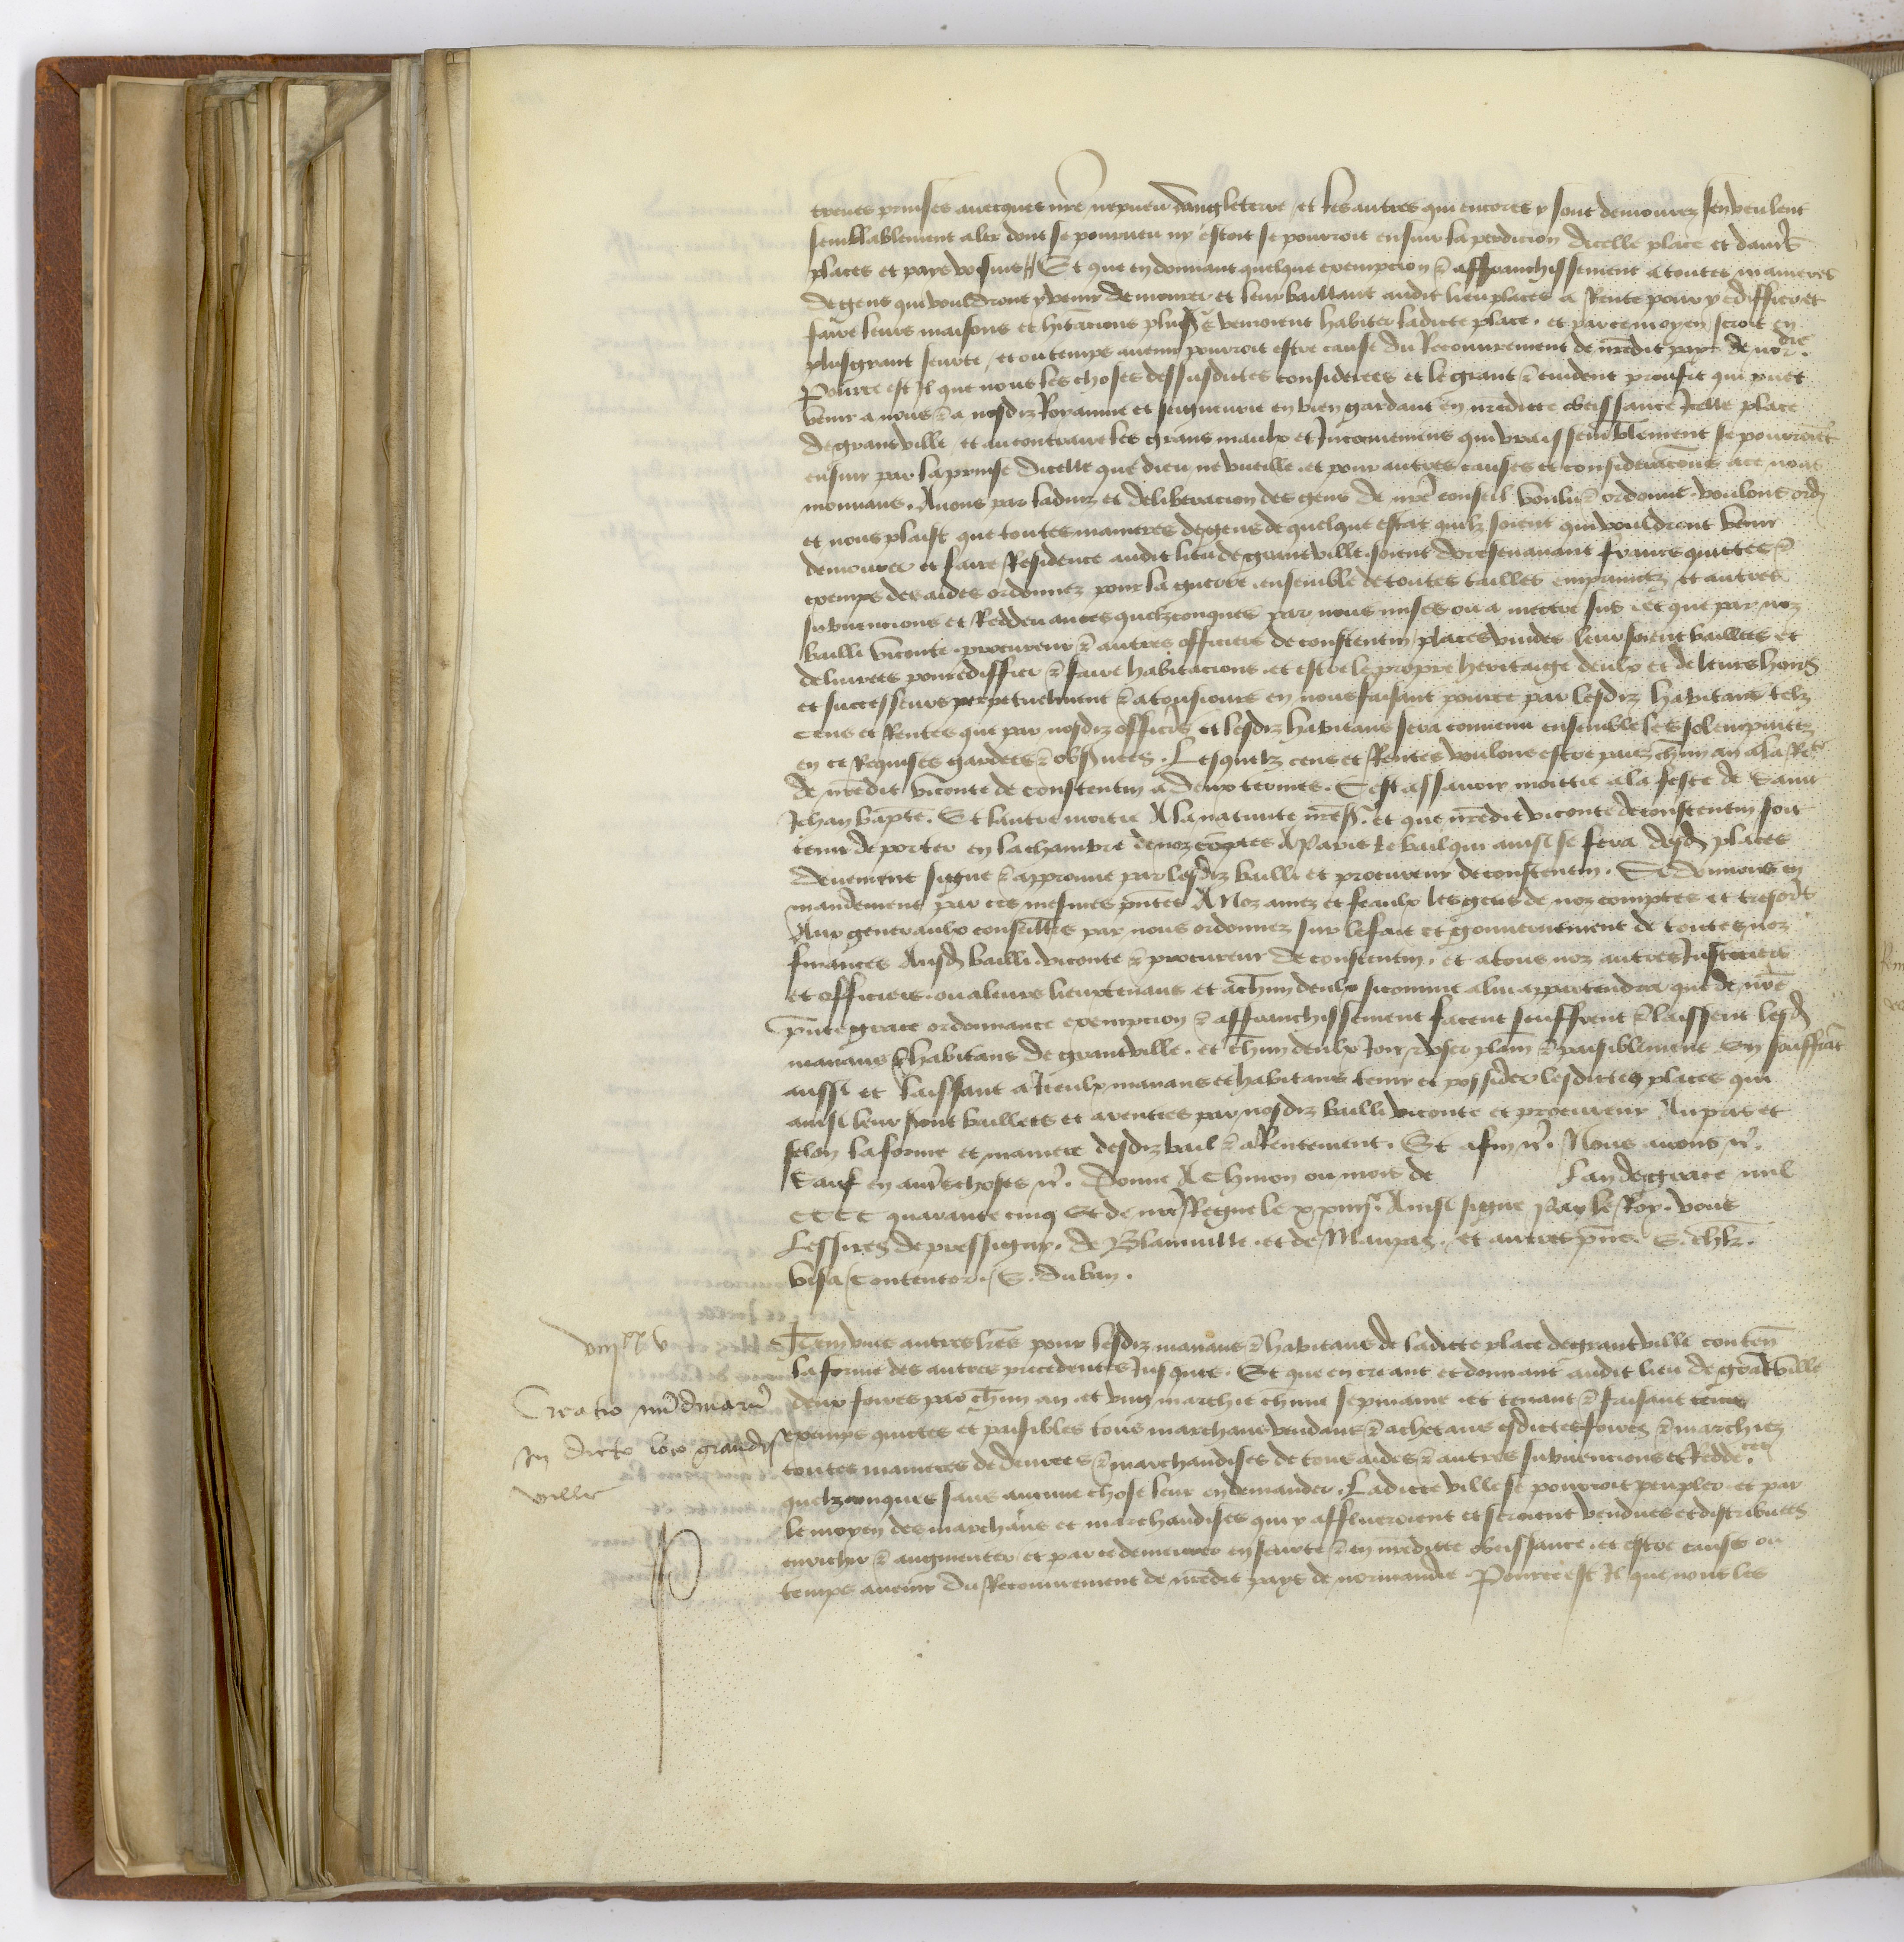 treues prinses auecques nre nepueu dangleterre et les autres qui encores y sont demourez sen veulent
semblablement aler dont se pourueu ny estoit se pourroit ensuir la perdicion dicelle place et dautrs
places et pays voisins Et que en donnant quelque exempcion & affranchissement a toutes manieres
de gens qui vouldront y venir demourer et leur baillant audit lieu places a Rente pour y ediffier et
faire leurs maisons et hitacions plusrs vendroient habiter ladicte place. et par ce moyen seroit en
plusgrant seurte / et ou temps auenir pourroit estre cause du Recouurement de nredit pays de nordie.
Pource est Il que nous les choses dessusdictes considerees et le grant & euident proufit qui puet
venir a nous & a nosdiz Royaume et seigneurie en bien gardant en nredicte obeissance Icelle place
de grantville / et au contraire les grans maulx et Inconueniens qui vraissemblement se pourroient
ensuir par la prinse dicelle que dieu ne vueille. et pour autres causes et consideracons ace nous
mouuans. Auons par laduiz et deliberacion des gens de nre conseil voulu & ordonne. voulons ord
et nous plaist que toutes manieres de gens de quelque estat quilz soient qui vouldront venir
demourer et faire Residence audit lieu de grantville. soient doresenauant francs quictes &
exemps des aides ordonnez pour la guerre. ensemble de toutes tailles empruntz et autres
subuencions et Reddeuances quelzconques par nous mises ou a mectre sus. et que par noz
bailli viconte. procureur & autres officiers de constentin places vuides leur soient baillees et
deliurees pour ediffier & faire habitacions. et estre le propre heritaige deulx et de leurs hoirs
et successeurs perpetuelment & a tousiours en nous faisant pource par lesdiz habitans telz
cens et Rentes que par nosdiz officrs et lesdiz habitans sera conuenu ensemble les solempnitez
en ce Requises gardees & obsuees. Lesquelz cens et Rentes voulons estre paiez chun an a la Recte
de nredit viconte de constentin a deux termes. Cest assauoir moictie a la feste de saint
Jehan bapte. Et lautre moitie A la natiuite nres. et que nredit viconte de constentin soit
tenu de porter en la chambre de noz coptes A Paris le bail qui ainsi se fera desd places
deuement signe & approuue par lesdiz bailli et procureur de constentin. Si donnons en
mandement par ces mesmes pntes A Noz amez et feaulx les gens de noz comptes et tresorrs
Aux generaulx conseillrs par nous ordonnez sur le fait et gouuernement de toutes noz
finances Ausd bailli. viconte & procureur de constentin. et a tous noz autres Justiciers
et officiers. ou a leurs lieuxtenans et a chun deulx si comme a lui appartendra que de nre
pnte grace ordonnance exempcion & affranchissement facent seuffrent & laissent lesd
manans & habitans de grantville. et chun deulx Joir & vser plain & paisiblement En souffrat
aussi et laissant a Iceulx manans et habitans tenir et posseder lesdictes places qui
ainsi leur seront baillees et arentees par nosdiz bailli viconte et procureur Au pris et
selon la forme et maniere desdiz bail & aRentement. Et afin &c. Nous auons &c.
Sauf en autrs choses &c. Donne A Chinon ou mois de Lan de grace mil
CCCC quarante cinq Et de nre Regne le xxiiie. Ainsi signe Par le Roy. vous
Les sires de pressigny. de Blainuille. et de Maupas. et autres pns. E. chlr.
Visa Contentor. E. duban.
viiixx v
Item vnes autres lres pour lesdiz manans & habitans de ladicte place de grantville conten
la forme des autres precedentes Jusques. Et que en creant et donnant audit lieu de grantville
Creatio nudinarum
deux foires par chun an. et vng marchie chune sepmaine. et tenant & faisant tenir
In dicto loco grandis
exemps quictes et paisibles tous marchans vendans & achetans esdictes foires & marchiez
toutes manieres de denrees & marchandises de tous aides & autres subuencions et Reddeces
ville
quelzconques sans aucune chose leur en demander. Ladicte ville se pourroit peupler et par
le moyen des marchans et marchandises qui y afflueroient et seroient vendues et distribuees
enrichir & augmenter / et par ce demeurer en seurte & en nredicte obeissance. et estre cause ou
temps auenir du Recouurement de nredit pays de normandie. Pource est Il que nous les